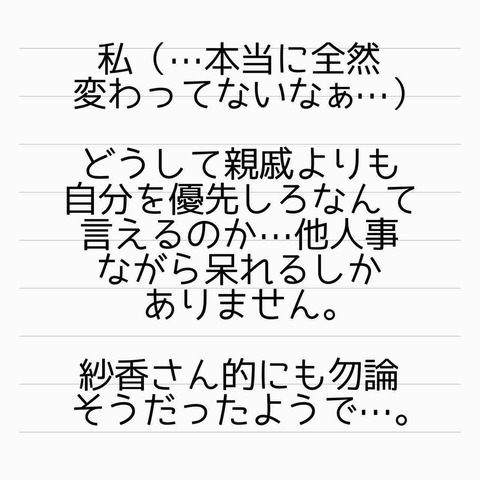 私（…本当に全然
変わってないなぁ…）
どうして親戚よりも
自分を優先しろなんて
言えるのか…他人事
ながら呆れるしか
ありません。
紗香さん的にも勿論
そうだったようで…。